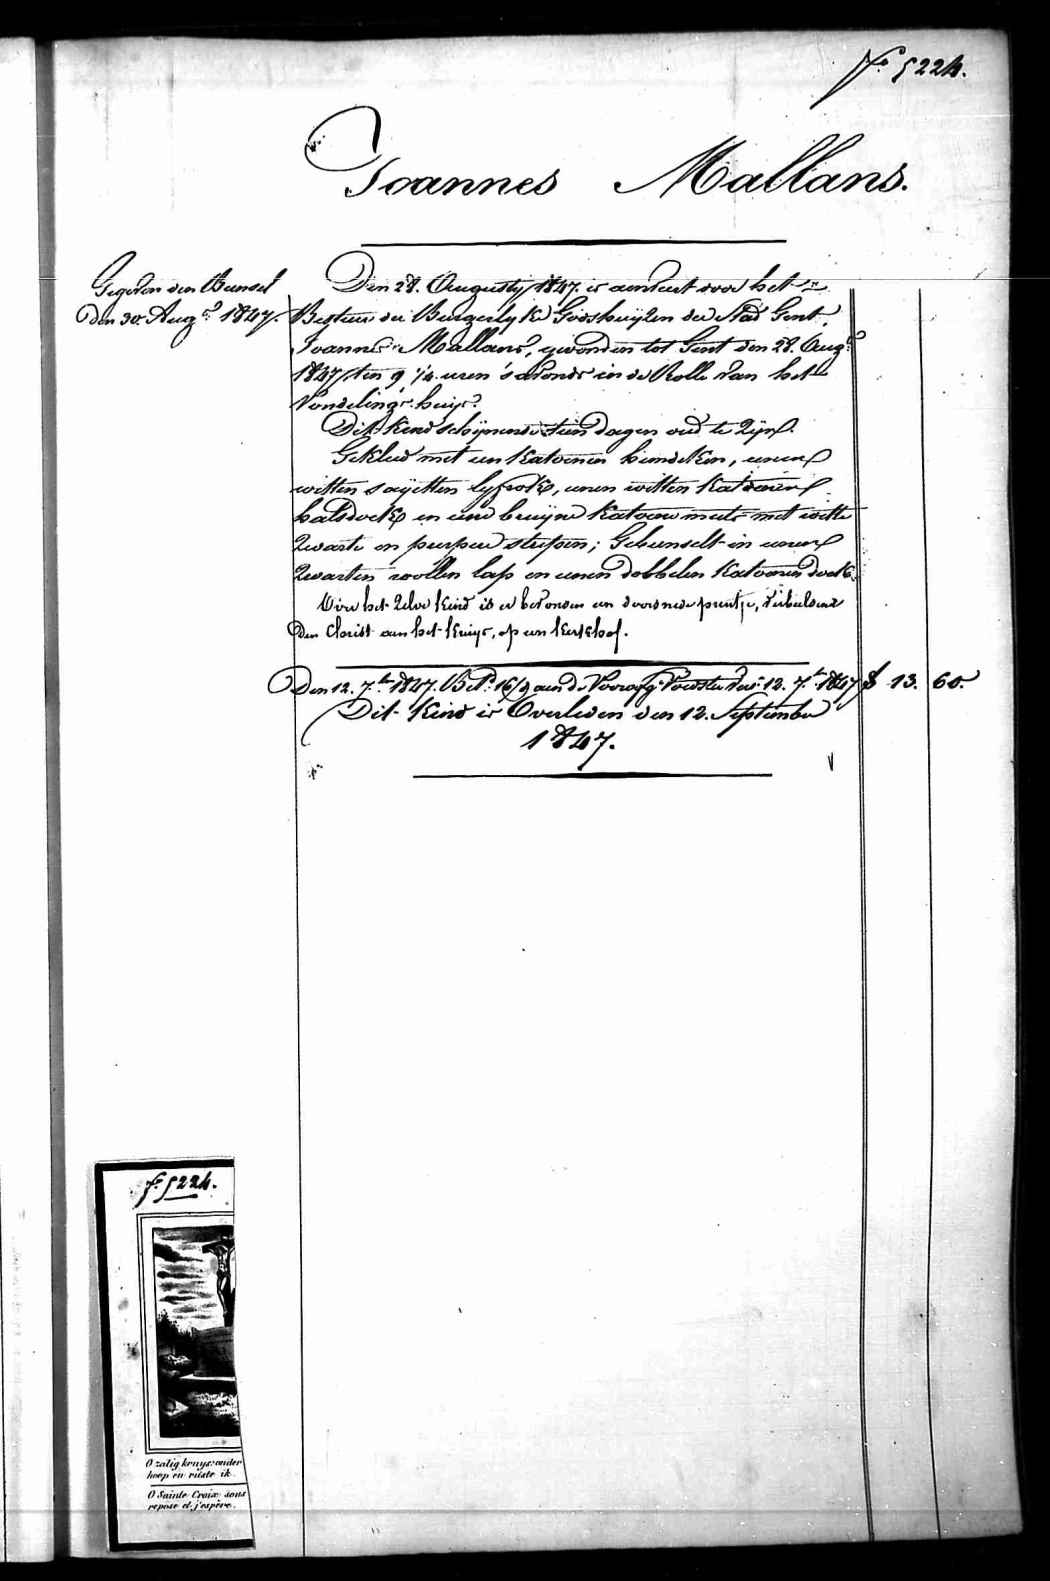 f.° 5224.
Joannes Mallans.
Gegeven den Bunsel
den 30. Aug.s 1847.
Den 28. Augusty 1847. is aenveert door het
Bestuur der Burgerlyke Godshuijzen der Stad Gent,
Joannes Mallans, gevonden tot Gent den 28. Aug.s
1847 ten 9 1/4. uren 's avonds in de Rolle van het
Vondeling's huijs.
Dit kind schijnende tien dagen oud te zijn.
Gekleed met een katoenen hemdeken, eenen
witten saijetten lyfrok, eenen witten katoenen
halsdoek en eene bruijne katoene muts met witte
zwarte en purpere strepen; Gebunselt in eenen
zwarten wollen lap en eenen dobbelen katoenen doek.
Over het zelve kind is er bevonden een doorsnede prentje, verbeeldende
den Christ aen het kruijs, op een kerkhof.
Den 12. 7.br 1847. Bet. 16/9 aen de Voorafg. Voedster tot 12. 7.br 1847 f 13. 60.
Dit kind is Overleden den 12. September
1847.
f.° 5224.
O zalig kruys: onder
hoop en rüste ik.
O Sainte Croix: sous
repose et j'espère.